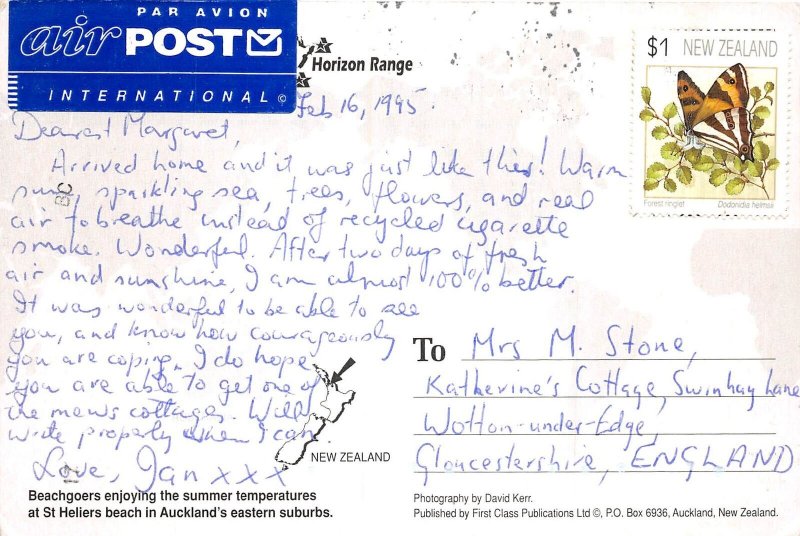 PAR AVION
air POST
INTERNATIONAL ©
Horizon Range
$1 NEW ZEALAND
Forest ringlet Dodonidia helmsii
Feb 16, 1995.
Dearest Margaret,
Arrived home and it was just like this! Warm
sun, sparkling sea, trees, flowers, and real
air to breathe instead of recycled cigarette
smoke. Wonderful. After two days of fresh
air and sunshine, I am almost 100% better.
It was wonderful to be able to see
you, and know how courageously
you are coping. I do hope
you are able to get one of
the mews cottages. Will
write properly when I can.
Love, Jan xxx
To Mrs M. Stone,
Katherine's Cottage, Swinhay Lane
Wotton-under-Edge,
Gloucestershire, ENGLAND
NEW ZEALAND
Beachgoers enjoying the summer temperatures
at St Heliers beach in Auckland's eastern suburbs.
Photography by David Kerr.
Published by First Class Publications Ltd ©, P.O. Box 6936, Auckland, New Zealand.